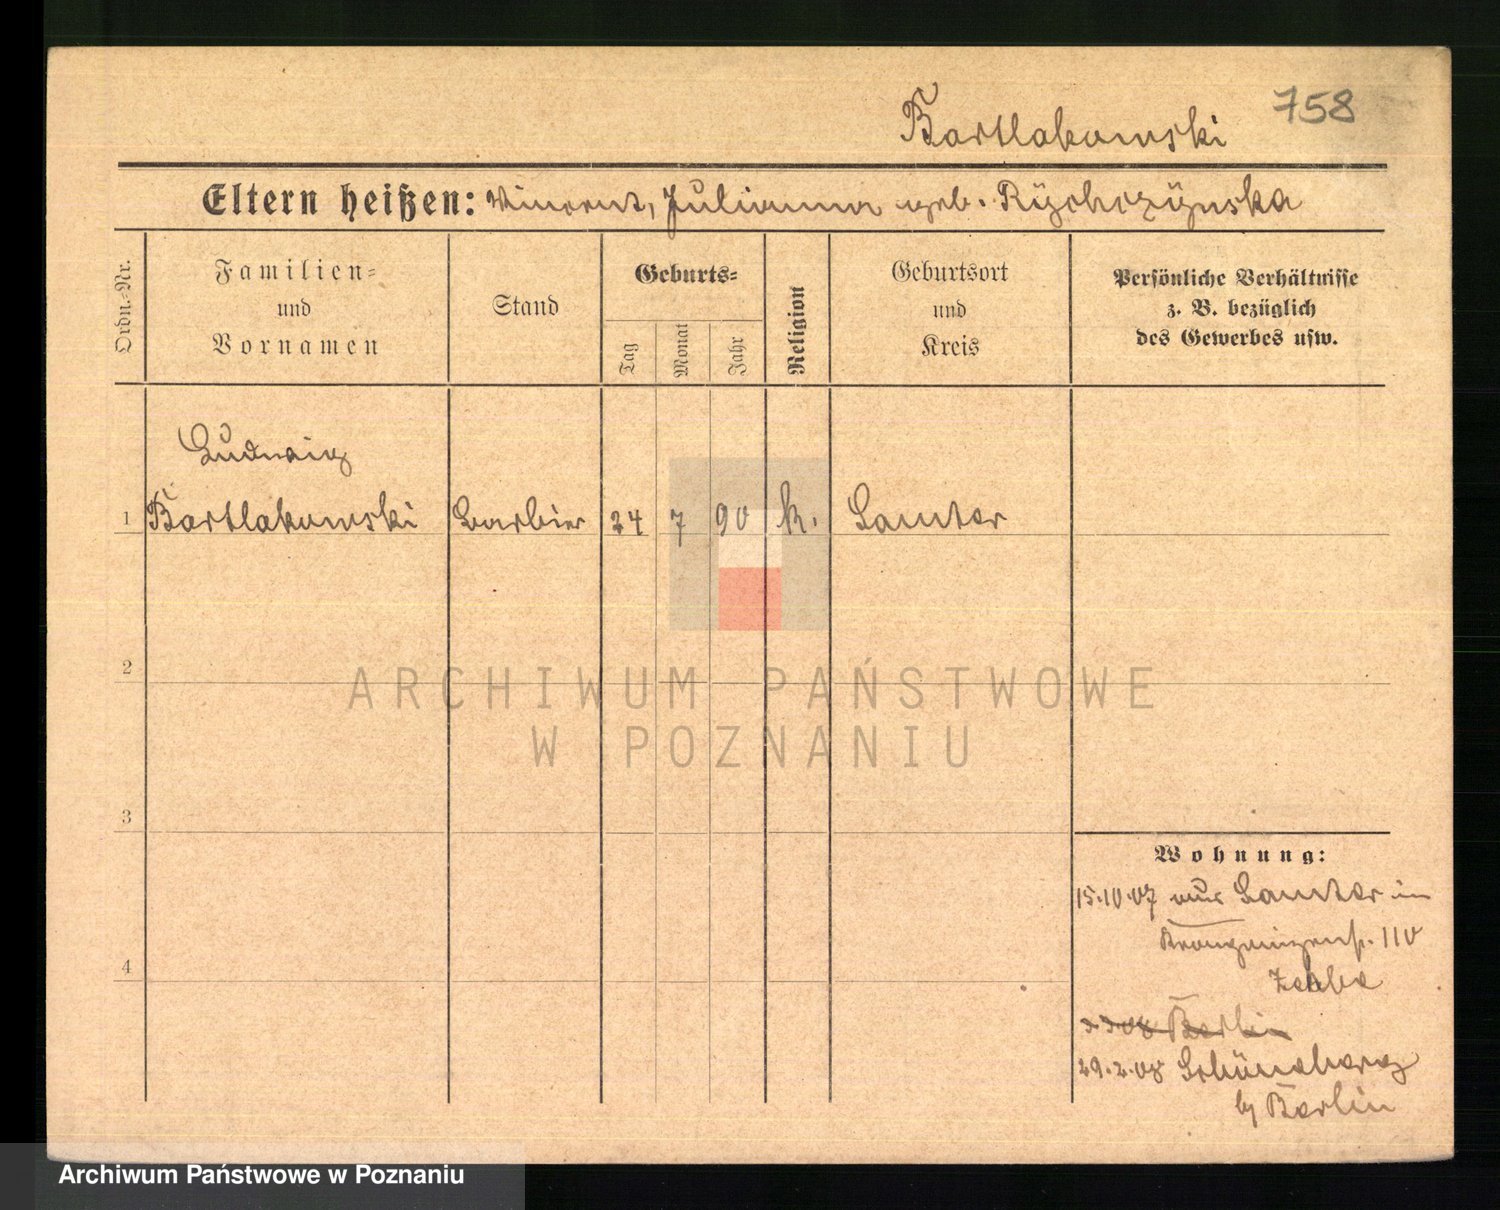 758
Bartlakowski
Eltern heißen: Vincent, Julianna geb. Rÿchczÿnska
Ordn.-Nr.
Familien-
und
Vornamen
Stand
Geburts-
Tag
Monat
Jahr
Religion
Geburtsort
und
Kreis
Persönliche Verhältnisse
z. B. bezüglich
des Gewerbes usw.
Ludwig
1 Bartlakowski Barbier 24 7 90 k. Samter
2
ARCHIWUM PAŃSTWOWE
W POZNANIU
3
Wohnung:
15.10.07 aus Samter in
Kronprinzenstr. 110
Berlin
4
29.2.08 Schöneberg
b/ Berlin
Archiwum Państwowe w Poznaniu